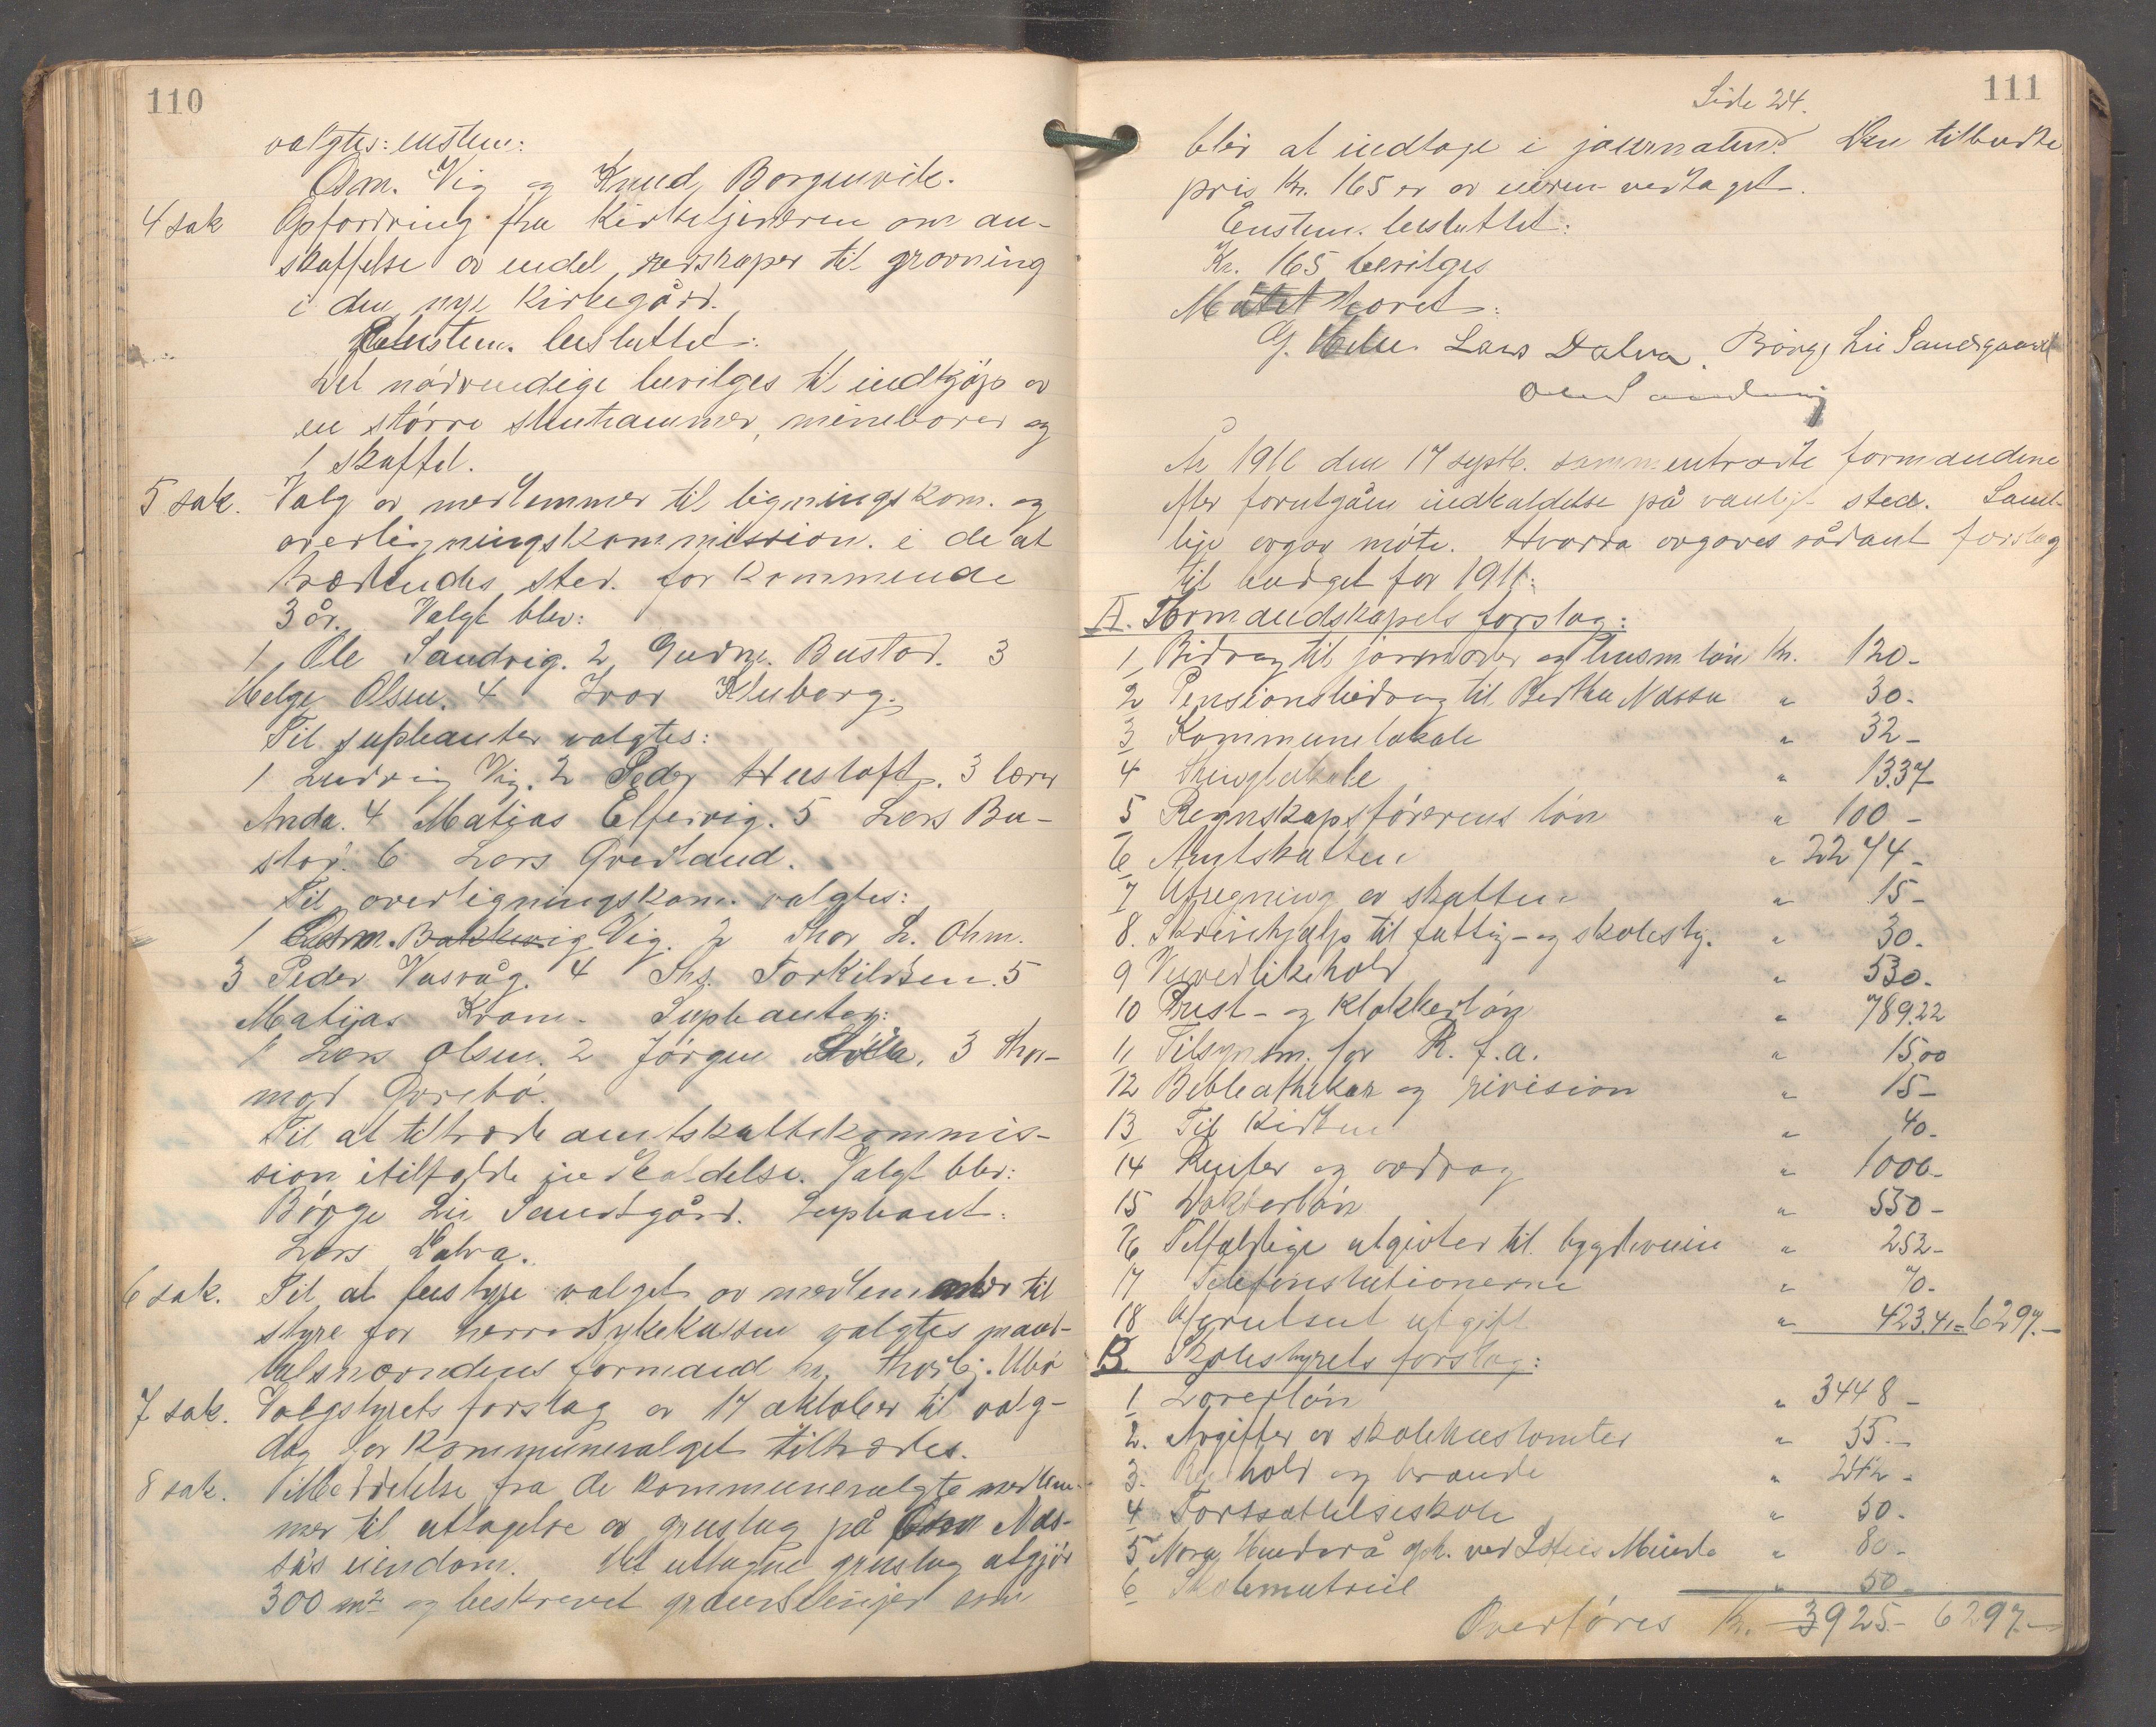 110
valgtes: enstem:
Osm. Vig og Knud Borgenvik.
4 sak Opfordring fra Kirketjeneren om an-
skaffelse av endel redskaper til gravning
i den nye Kirkegård.
Enstem. besluttet:
Det nødvendige bevilges til indkjøp av
en større stenhammer, mineborer og
1 skaffel.
5 sak. Valg av medlemmer til ligningskom. og
overligningskommission. i de at
trædendes sted. for kommende
3 år. Valgt blev:
1, Ole Sandvig. 2, Gudm. Bustad. 3
Helge Olsen. 4 Ivar Kleborg.
Til supleanter valgtes:
1 Ludvig Vig. 2 Peder Hustoft. 3 lærer
Anda. 4 Matias Elfevig. 5 Lars Bu-
stad. 6 Lars Qvedland.
Til overligningskom. valgtes:
1 Osm. Vig. 2 Thor L. Ohm.
3 Peder Vasvåg. 4 Ths. Torkildsen. 5
Matijas Kram. Supleanter:
1 Lars Olsen. 2 Jørgen 3 Thor-
mod Qvrebø.
Til at tiltræde amtskattekommis-
sion itilfælde indkaldelse. Valgt blev:
Børge Lie Sandsgård. Supleant:
Lars Dalva.
6 sak. Til at bestyre valget av medlemmer til
styre for herredsykekassen valgtes mand-
talsnævndens formand hr. Thorbj. Ubø
7 sak. Valgstyrets forslag av 17 oktober til valg-
dag for Kommunevalget tiltrædes.
8 sak. Meddelelse fra de kommunevalgte medlem-
mer til uttagelse av grustag på Nas-
sa's eiendom. Det uttagne grustag utgjør
300 m2 og beskrevet grænselinjer som
Side 24.
111
blir at indtage i journalen. Den tilbudte
pris Kr. 165 er av eieren vedtaget.
Enstem. besluttet:
Kr. 165 bevilges
Møtet hævet:
G. Lars Dalva. Børge Lie Sandsgaard
År 1910 den 17 septb. sammentrådte formændene
efter forutgåen indkaldelse på vanligt sted. Samt-
lige avgav møte. Hvorda avgaves sådant forslag
til budget for 1911:
A. Formandskapets forslag:
1, Bidrag til jormoder og husm løn Kr. 120-
2 Pensionsbidrag til Bertha Nassa " 30-
3 Kommunelokale " 32-
4 Thinglokale " 13.37
5 Regnskapsførerens løn " 100-
6 Amtskatten " 2274-
7 Utregning av skatten " 15-
8. Skrivehjælp til fattig- og skolesty. " 30-
9 Veivedlikehold " 530-
10 Prest- og klokkerløn " 789.22
11 Tilsynsm. for R. f. a. " 15.00
12 Bibleathekar og revision " 15-
13 Til Kirken " 40-
14 Renter og avdrag " 1000-
15 Dokterløn " 550-
16 Tilfældige utgivter til bygdeveiene " 252-
17 Telefonstationerne " 70-
18 Uforutseet utgift " 423.41= 6297.-
B. Skolestyrets forslag:
1 Lærerløn " 3448-
2. Avgifter av skolehustomter " 55.-
3. Renhold og brænde " 242-
4 Fortsættelseskole " 50-
5 Nora Hinderå oph. ved Miinde " 80-
6 Skolematriel " 50-
Overføres Kr. 3925.- 6297.-